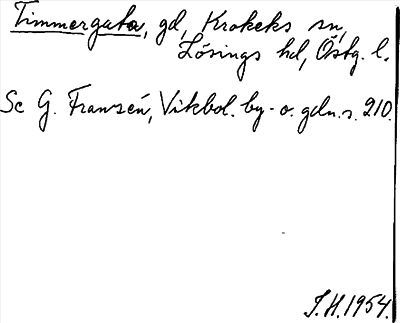 Timmergata, gd, Krokeks sn,
Lösings hd, Östg. l.
Se G. Franzén, Vikbol. by- o. gdn.s. 210.
I.H.1954.